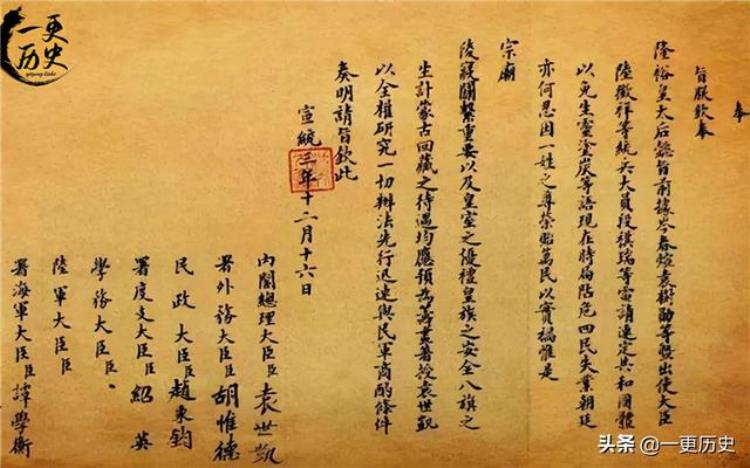 奉
旨朕欽奉
隆裕皇太后懿旨前據岑春煊袁樹勛等暨出使大臣
陸徵祥等統兵大員段祺瑞等電請速定共和國體
以免生靈塗炭等語現在時局阽危四民失業朝廷
亦何忍因一姓之尊榮貽萬民以實禍惟是
宗廟
陵寢關繫重要以及皇室之優禮皇族之安全八旗之
生計蒙古回藏之待遇均應預為籌畫著授袁世凱
以全權研究一切辦法先行迅速與民軍商酌條件
奏明請旨欽此
宣統三年十二月十六日
內閣總理大臣臣袁世凱
署外務大臣臣胡惟德
民政大臣臣趙秉鈞
署度支大臣臣紹英
學務大臣臣
陸軍大臣臣
署海軍大臣臣譚學衡
一更历史
头条 @一更历史